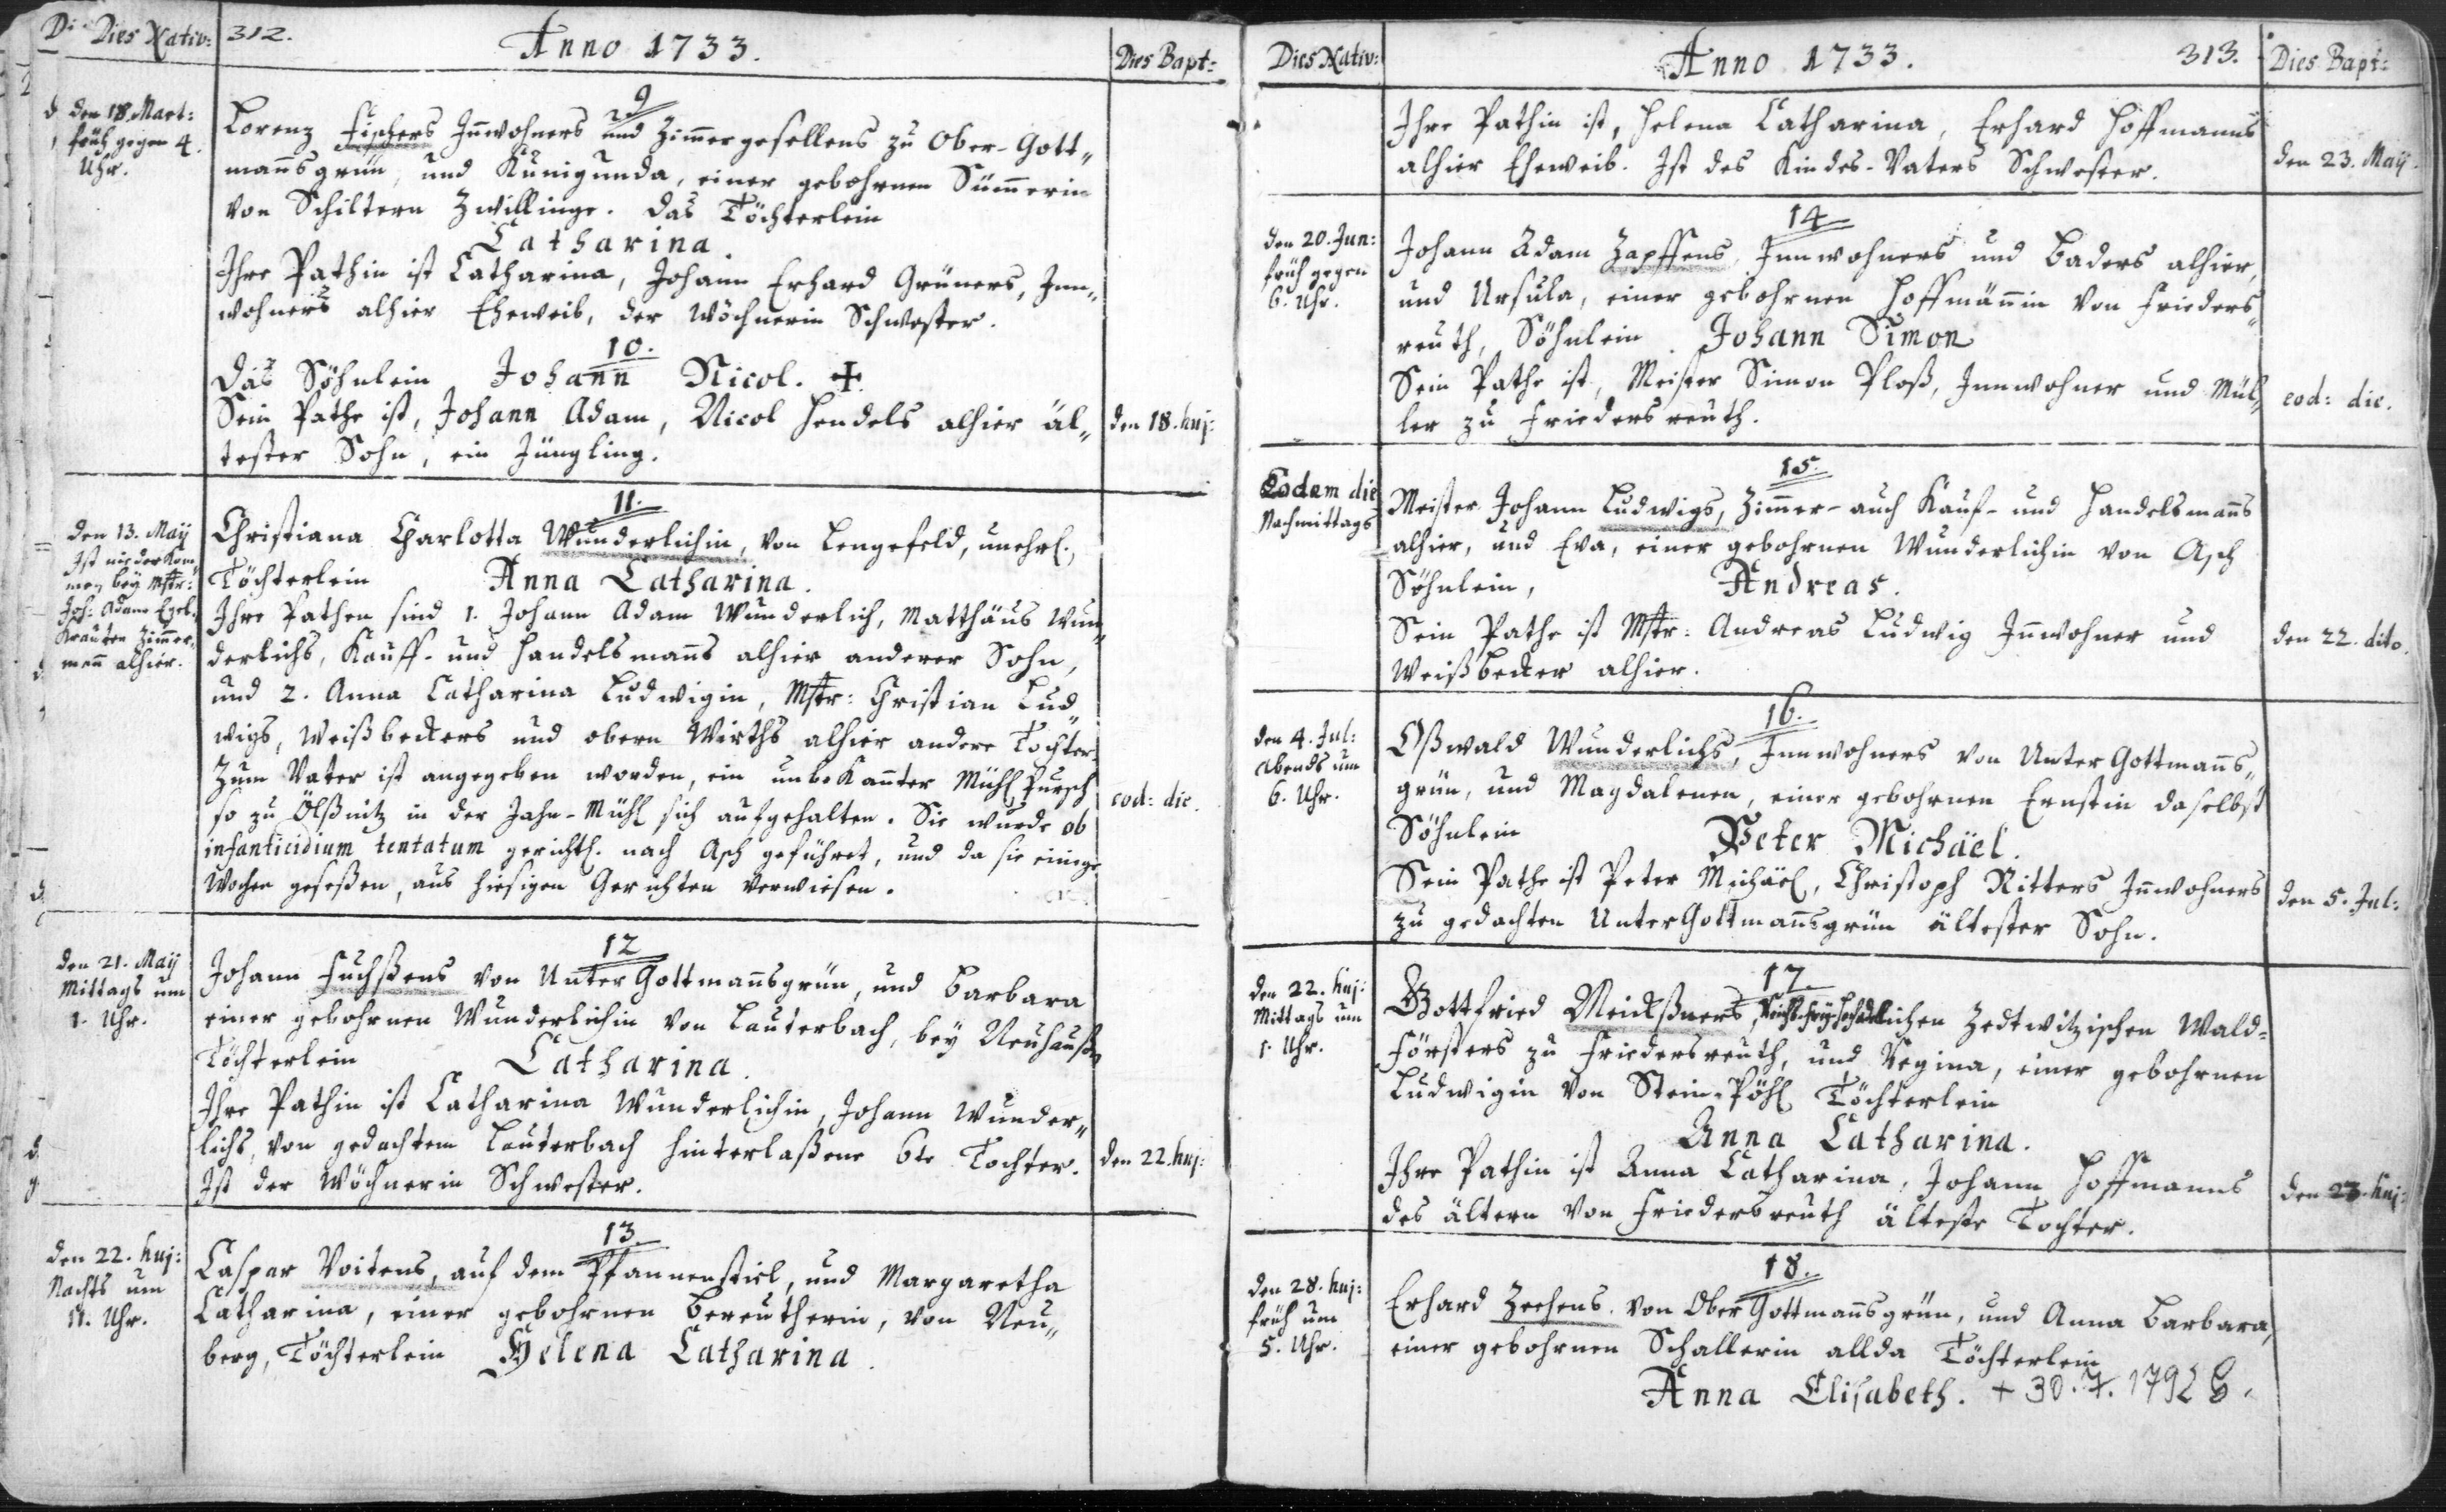 Dies Nativ: 312. Anno 1733. Dies Bapt:
9
den 18. Mart:
früh gegen 4.
Uhr.
Lorenz Fischers Inwohners und Zimergesellens zu Ober-Gott„
mansgrün, und Kunigunda, einer gebohrnen Sümerin
von Schiltern Zwillinge. das Töchterlein
Catharina.
Ihre Pathin ist Catharina, Johann Erhard Grüners, Inn„
wohners alhier Eheweib, der Wöchnerin Schwester.
10.
das Söhnlein Johann Nicol. +
Sein Pathe ist, Johann Adam, Nicol Hendels alhier äl„
tester Sohn, ein Jüngling.
den 18. huj:
11.
den 13. Maij
Ist niederkom„
men bey Mstr:
Joh: Adam Egel„
Krauten Zimer„
man alhier.
Christiana Charlotta Wunderlichin, von Lengefeld, unehrl.
Töchterlein Anna Catharina.
Ihre Pathen sind 1. Johann Adam Wunderlich, Matthäus Wun„
derlichs, Kauff- und Handelsmans alhier anderer Sohn,
und 2. Anna Catharina Ludwigin, Mstr: Christian Lud„
wigs, Weißbeckers und obern Wirths alhier andere Tochter.
Zum Vater ist angegeben worden, ein unbekanter Mühl Pursch
so zu Ölßnitz in der Jahn-Mühl sich aufgehalten. Sie wurde ob
infanticidium tentatum gerichtl. nach Asch geführet, und da sie einige
Wochen geseßen, aus hiesigen Gerichten verwiesen.
eod: die.
12
den 21. Maij
Mittags um
1. Uhr.
Johann Fuchßens von Unter Gottmansgrün, und Barbara
einer gebohrnen Wunderlichin von Lauterbach, bey Neuhausen
Töchterlein Catharina.
Ihre Pathin ist Catharina Wunderlichin, Johann Wunder„
lichs, von gedachtem Lauterbach hinterlaßene 6te Tochter.
Ist der Wöchnerin Schwester.
den 22. huj:
13.
den 22. huj:
Nachts um
11. Uhr.
Caspar Voitens, auf dem Pfannenstiel, und Margaretha
Catharina, einer gebohrnen Bereutherin, von Neu„
berg, Töchterlein Helena Catharina.
Dies Nativ: Anno 1733. 313. Dies Bapt:
Ihre Pathin ist, Helena Catharina, Erhard Hoffmanns
alhier Eheweib. Ist des Kindes-Vaters Schwester.
den 23. Maij.
14
den 20. Jun:
früh gegen
6. Uhr.
Johann Adam Zapffens, Innwohners und Baders alhier,
und Ursula, einer gebohrnen Hoffmänin von Frieders„
reuth, Söhnlein Johann Simon
Sein Pathe ist, Meister Simon Ploß, Innwohner und Mül„
ler zu Friedersreuth.
eod: die.
15.
Eodem die
Nachmittags
Meister Johann Ludwigs, Zimer- auch Kauf- und Handelsmans
alhier, und Eva, einer gebohrnen Wunderlichin von Asch
Söhnlein, Andreas.
Sein Pathe ist Mstr: Andreas Ludwig Inwohner und
Weißbecker alhier.
den 22. dito.
16.
den 4. Jul:
Abends um
6. Uhr.
Oßwald Wunderlichs, Innwohners von Unter Gottmans„
grün, und Magdalenen, einer gebohrnen Ernstin daselbst
Söhnlein Peter Michäel.
Sein Pathe ist Peter Michäel, Christoph Ritters Inwohners
zu gedachten Unter Gottmansgrün ältester Sohn.
den 5. Jul:
17.
den 22. huj:
Mittags um
1. Uhr.
Gottfried Meickßners, Reichs-freyhochadelichen Zedtwitzischen Wald-
Försters zu Friedersreuth, und Regina, einer gebohrnen
Ludwigin von Stein-Pöhl Töchterlein
Anna Catharina.
Ihre Pathin ist Anna Catharina, Johann Hoffmanns
des ältern von Friedersreuth älteste Tochter.
den 23. huj:
18.
den 28. huj:
früh um
5. Uhr.
Erhard Zeehens von Ober Gottmansgrün, und Anna Barbara,
einer gebohrnen Schallerin allda Töchterlein
Anna Elisabeth. + 30. 7. 1792